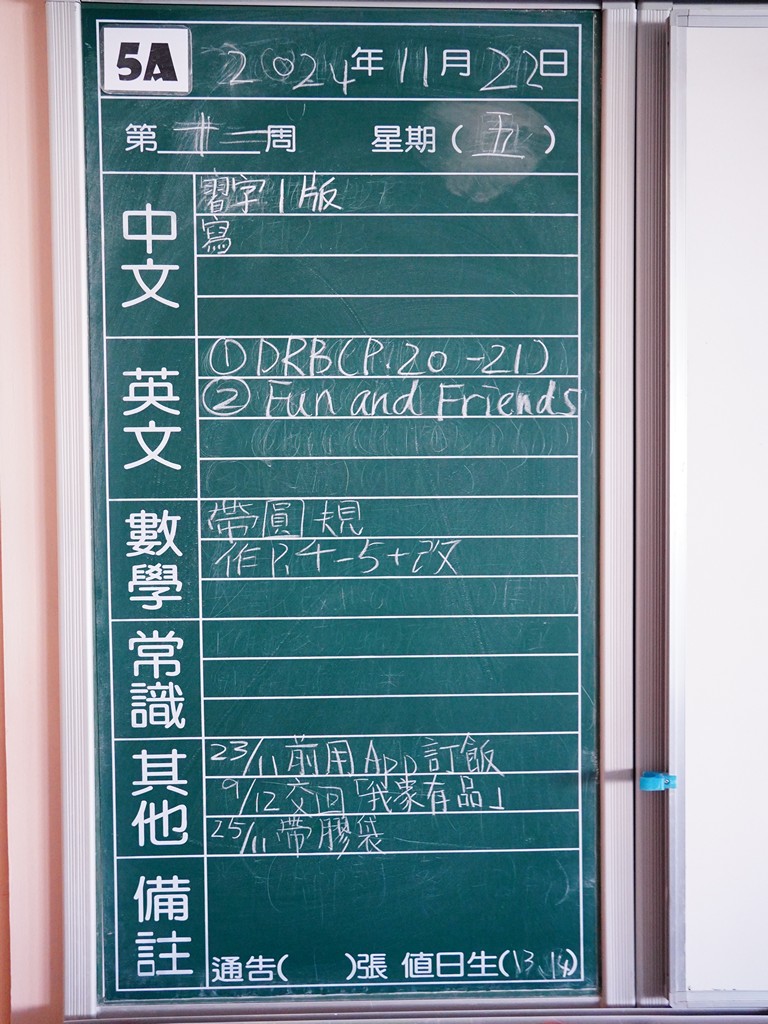 5A
2024年11月22日
第十二周 星期(五)
中文
字1版
寫
英文
①DRB(P.20-21)
② Fun and Friends
數學
帶圓規
作P.4-5+改
常識
其他
23/11前用App訂飯
9/12交回「我家有品」
25/11帶膠袋
備註
通告( )張 值日生(13,14)